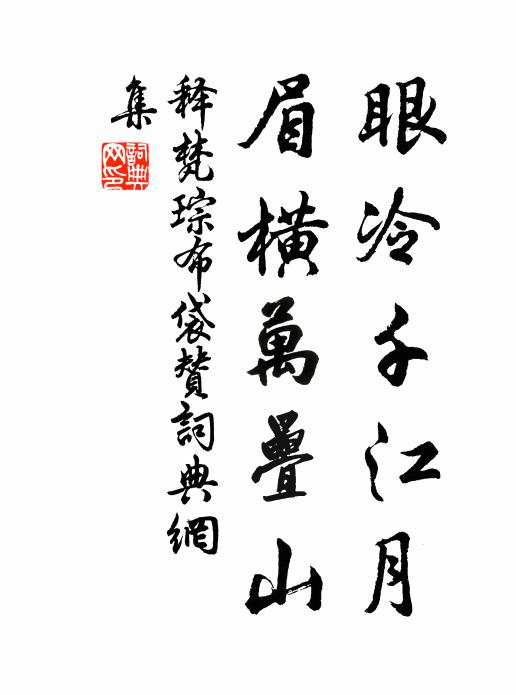 眼冷千江月
眉橫萬疊山
释梵琮布袋贊詞典網
集
詞典
网印